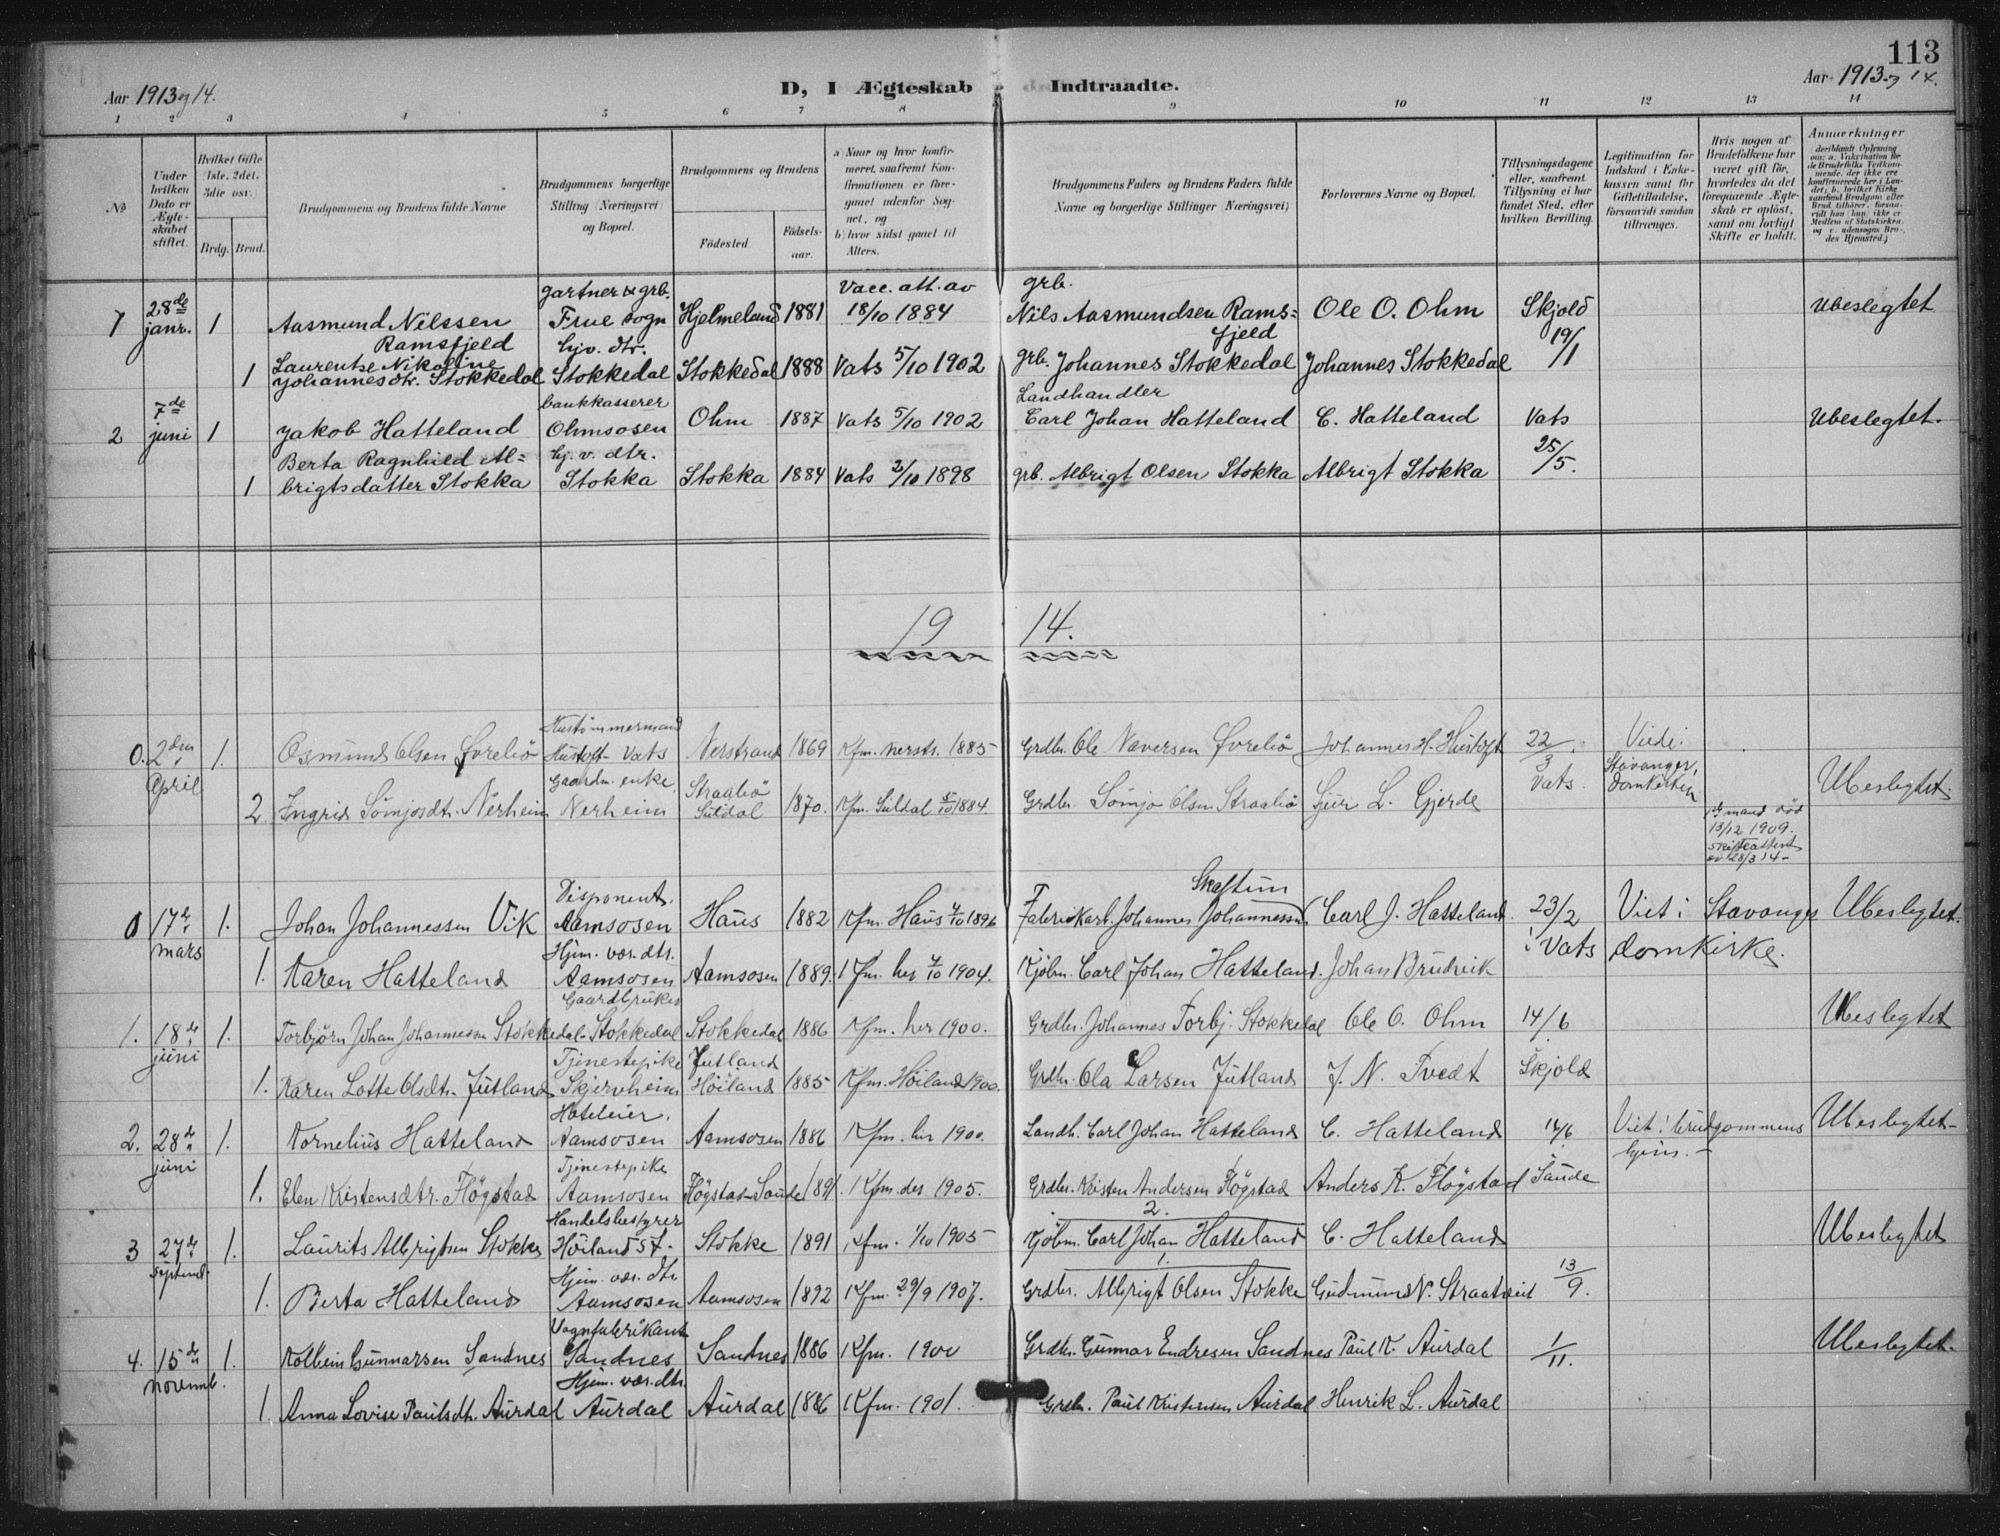 113
Aar 1913 og 14.
D, I Ægteskab Indtraadte.
Aar 1913 og 14.
1 2 3 4 5 6 7 8 9 10 11 12 13 14
No
Under hvilken Dato er Ægteskabet stiftet.
Hvilket Gifte (1ste. 2det. 3die osv.)
Brdg. Brud.
Brudgommens og Brudens fulde Navne
Brudgommens borgerlige Stilling (Næringsvei) og Bopæl.
Brudgommens og Brudens
Födested.
Födselsaar.
a) Naar og hvor konfirmeret, saafremt Konfirmationen er foregaaet udenfor Sognet, og b) hvor sidst gaaet til Alters.
Brudgommens Faders og Brudens Faders fulde Navne og borgerlige Stillinger (Næringsvei)
Forlovernes Navne og Bopæl.
Tillysningsdagene eller, saafremt Tillysning ei har fundet Sted, efter hvilken Bevilling.
Legitimation for Indskud i Enkekassen samt for Giftetilladelse, forsaavidt saadan tiltrænges.
Hvis nogen af Brudefolkene har været gift för, hvorledes da det foregaaende Ægteskab er oplöst, samt om lovligt Skifte er holdt.
Anmerkninger
gartner & grb. Vacc. att. av grb.
1 28de janr. 1 Aasmund Nilssen Ramsfjeld Frue sogn Hjelmeland 1881 18/10 1884 Nils Aasmundsen Ramsfjeld Ole O. Ohm Skjold 19/1 Ubeslegtet
1 Laurentse Nikoline Johannesdtr. Stokkedal hjv. dtr. Stokkedal Stokkedal 1888 Vats 5/10 1902 grb. Johannes Stokkedal Johannes Stokkedal
2 7de juni 1 Jakob Hatteland bankkasserer Ohmsosen Ohm 1887 Vats 5/10 1902 Landhandler Carl Johan Hatteland C. Hatteland Vats 25/5. Ubeslegtet.
1 Berta Ragnhild Albrigtsdatter Stokka hj. v. dtr. Stokka Stokka 1884 Vats 2/10 1898 grb. Albrigt Olsen Stokka Albrigt Stokka
19 14.
0. 2den April 1. Osmund Olsen Øvrebö Hustömmermand Hustoft - Vats Nerstrand 1869 Kfm. nerstr. 1885 Grdbr. Ole Naversen Øvrebö Johannes H. Hustoft 22/3 Vats. Viede i Stavanger, domkirken Ubeslegtet.
2 Ingrid Sömjosdtr. Nerheim Gaardm. enke Nerheim Straabö Suldal 1870. Kfm. Suldal 5/10 1884. Grdbr. Sömjo Olsen Straabö Sjur L. Gjerde 1ste mand död 13/12 1909. Skifteattest av 28/3 14 -
0 17de mars 1. Johan Johannessen Vik Disponent. Aamsosen Haus 1882 Kfm. Haus 4/10 1896 Fabrikarb. Johannes Johannessen Skaftun Carl J. Hatteland 23/2 i Vats Viet i Stavanger domkirke. Ubeslegtet.
1. Karen Hatteland Hjem. vær. dtr. Aamsosen Aamsosen 1889. Kfm. her 2/10 1904. Kjöbm. Carl Johan Hatteland. Johan Brudvik
1. 18de juni 1. Torbjörn Johan Johannessen Stokkedal Gaardbruker Stokkedal Stokkedal 1886 Kfm. her 1900. Grdbr. Johannes Torbj. Stokkedal Ole O. Ohm 14/6 Skjold Ubeslegtet
1. Karen Lotte Olsdtr. Jutland Tjenestepike Skjervheim Jutland Höiland 1885 Kfm. Höiland 1900. Grdbr. Ola Larsen Jutland J. N. Tvedt
2. 28de juni 1. Kornelius Hatteland Hoteleier. Aamsosen Aamsosen 1886 Kfm. her 1900. Landh. Carl Johan Hatteland C. Hatteland 14/6 Saude Viet i brudgommens hjem. - Ubeslegtet -
1. Elen Kristensdtr. Flögstad Tjenestepike Aamsosen Flögstad - Saude 1891. Kfm. der 1905. Grdbr. Kristen Andersen Flögstad Anders K. Flögstad
3 27de septemb. 1. Laurits Albrigtsen Stokke Handelsbestyrer Höiland St. Stokke 1891 Kfm. 1/10 1905 2. Kjöbm. Carl Johan Hatteland C. Hatteland 13/9. Ubeslegtet
1. Berta Hatteland Hjem. vær. dtr. Aamsosen Aamsosen 1892 Kfm. 29/9 1907. 1. Grdbr. Albrigt Olsen Stokke Gudmund N. Straatveit
4. 15de novemb. 1. Kolbein Gunnarsen Sandnes Vognfabrikant Sandnes Sandnes 1886 Kfm. 1900 Grdbr. Gunnar Endresen Sandnes Paul K. Aurdal 1/11. Ubeslegtet.
1. Anna Lovise Paulsdtr. Aurdal Hjem. vær. dtr. Aurdal Aurdal 1886 Kfm. 1901. Grdbr. Paul Kristensen Aurdal Henrik L. Aurdal